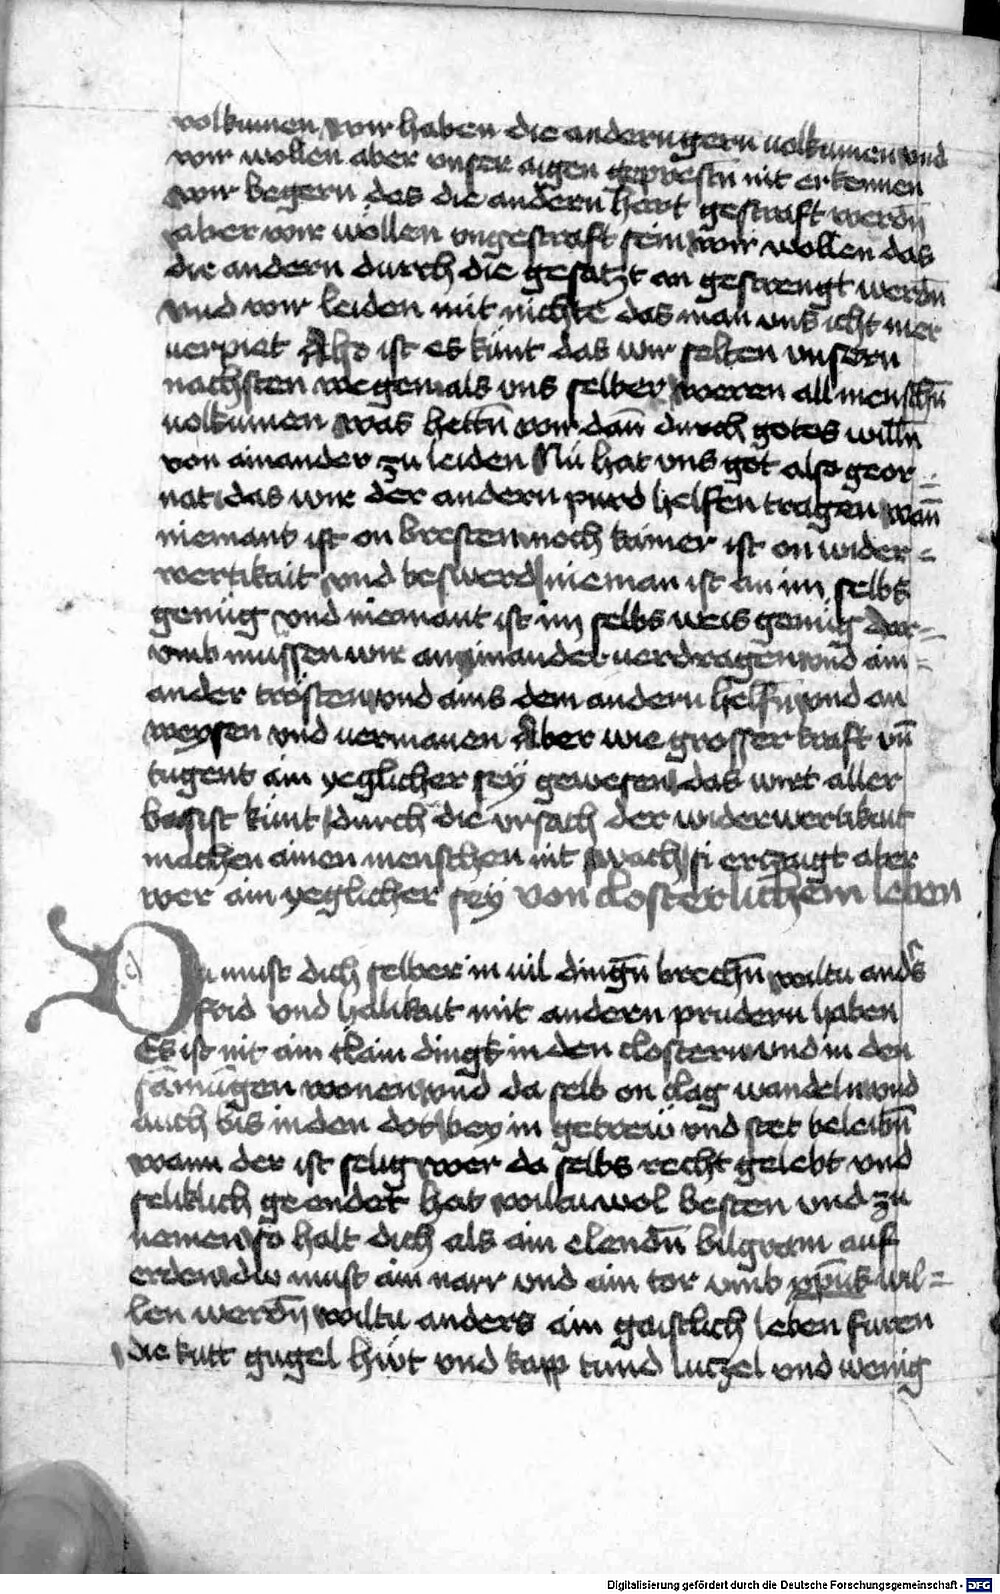 volkumen wir haben die andern gern uolkumen vnd
wir wollen aber vnser aigen geprestn̄ nit erkennen
wir begern das die andern hart gestraft werdn̄
aber wir wöllen vngestraft sein wir wöllen das
die andern durch die gesatzt an gestrengt werdn̄
vnd wir leiden mit nichte das man vns icht mer
uerpiet Also ist es kunt das wir selten vnsern
nachsten wegen als vns selber weren all menschn̄
uolkumen was hettn̄ wir dan̄ durch gotes willn̄
von ainander zu leiden Nu hat vns got also geor-
nat das wir der andern purd helfen tragen wan̄
niemant ist on bresten noch kainer ist on wider=
wertikait vnd beswerd nieman ist an im selbs
genüg vnd niemant ist im selbs weis genüg dar=
vmb mussen wir an ainander uerdragen vnd ain=
ander trösten vnd ains dem andern helfn̄ vnd an
weysen vnd uermanen Aber wie grosser kraft vn̄
tugent ain yeglicher sey gewesen das wirt aller
basist kunt durch die vrsach der widerwertikait
machen ainen menschen nit swach si erczaigt aber
wer ain yeglicher sey von closterlichem leben
Du must dich selber in uil dingn̄ brechn̄ wiltu anders
frid vnd halikait mit andern prudern haben
Es ist nit ain klain dingk in den clostern vnd in den
samūgen wonen vnd da selb on clag wandeln vnd
auch bis in den dot bey in getreü vnd stet beleibn̄
wann der ist selig wer da selbs recht gelebt vnd
seliklich geendet hat wiltu wol besten vnd zu
nemen so halt dich als ain elendn̄ bilgram auf
erden du must ain narr vnd ain tor vmb xp̄us wil=
len werdn̄ wiltu anders ain gaistlich leben furen
die kutt gugel hüt vnd kapp tund lutzel vnd wenig
Digitalisierung gefördert durch die Deutsche Forschungsgemeinschaft - DFG